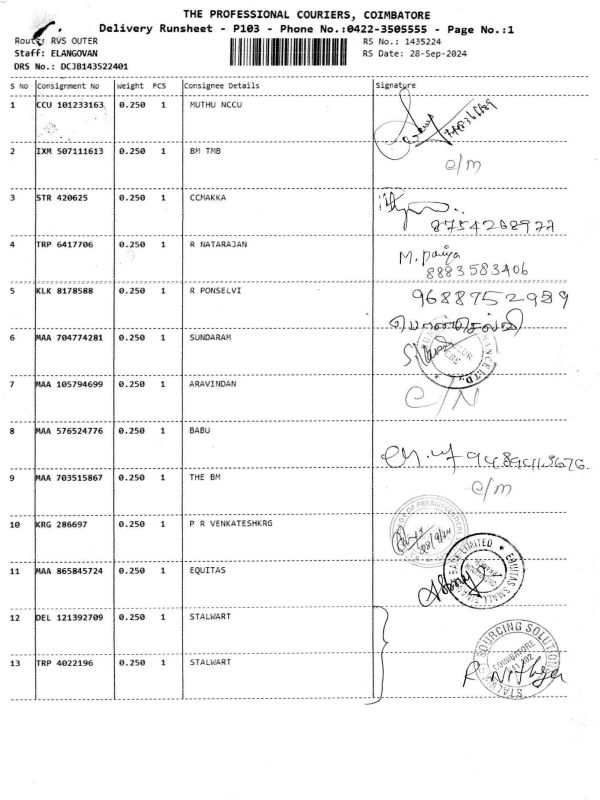 THE PROFESSIONAL COURIERS, COIMBATORE
Delivery Runsheet - P103 - Phone No.:0422-3505555 - Page No.:1
Route: RVS OUTER
RS No.: 1435224
Staff: ELANGOVAN
RS Date: 28-Sep-2024
DRS No.: DCJB143522401
S No Consignment No Weight PCS Consignee Details Signature
1 CCU 101233163 0.250 1 MUTHU NCCU
2 IXM 507111613 0.250 1 BM TMB c/m
3 STR 420625 0.250 1 CCMAKKA
4 TRP 6417706 0.250 1 R NATARAJAN M. Pariya
8883583406
5 KLK 8178588 0.250 1 R PONSELVI 9688752989
பொன்செல்வி
6 MAA 704774281 0.250 1 SUNDARAM
7 MAA 105794699 0.250 1 ARAVINDAN C/N
8 MAA 576524776 0.250 1 BABU
9 MAA 703515867 0.250 1 THE BM c/m
10 KRG 286697 0.250 1 P R VENKATESHKRG
28/9/24
11 MAA 865845724 0.250 1 EQUITAS
BANK LIMITED * EQUITAS SMALL
12 DEL 121392709 0.250 1 STALWART
SOURCING SOLUTION
COIMBATORE
641 402
13 TRP 4022196 0.250 1 STALWART